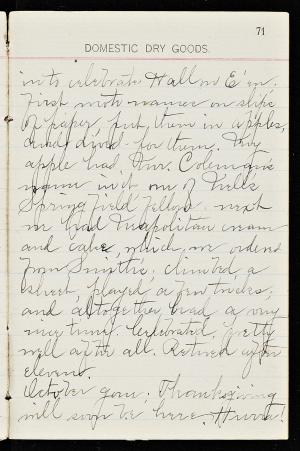 71
DOMESTIC DRY GOODS.
in to celebrate Hallow E'en.
First wrote names on slips
of paper put them in apples,
and dived for them. My
apple had Mr. Coleman's
name in it one of Nell's
Springfield fellows. next
we had Neapolitan cream
and cake, which we ordered
from Smith's; climbed a
sheet, played a few tricks;
and altogether had a very
nice time. Celebrated pretty
well after all. Retired after
eleven.
October gone; Thanksgiving
will soon be here. Hurra!